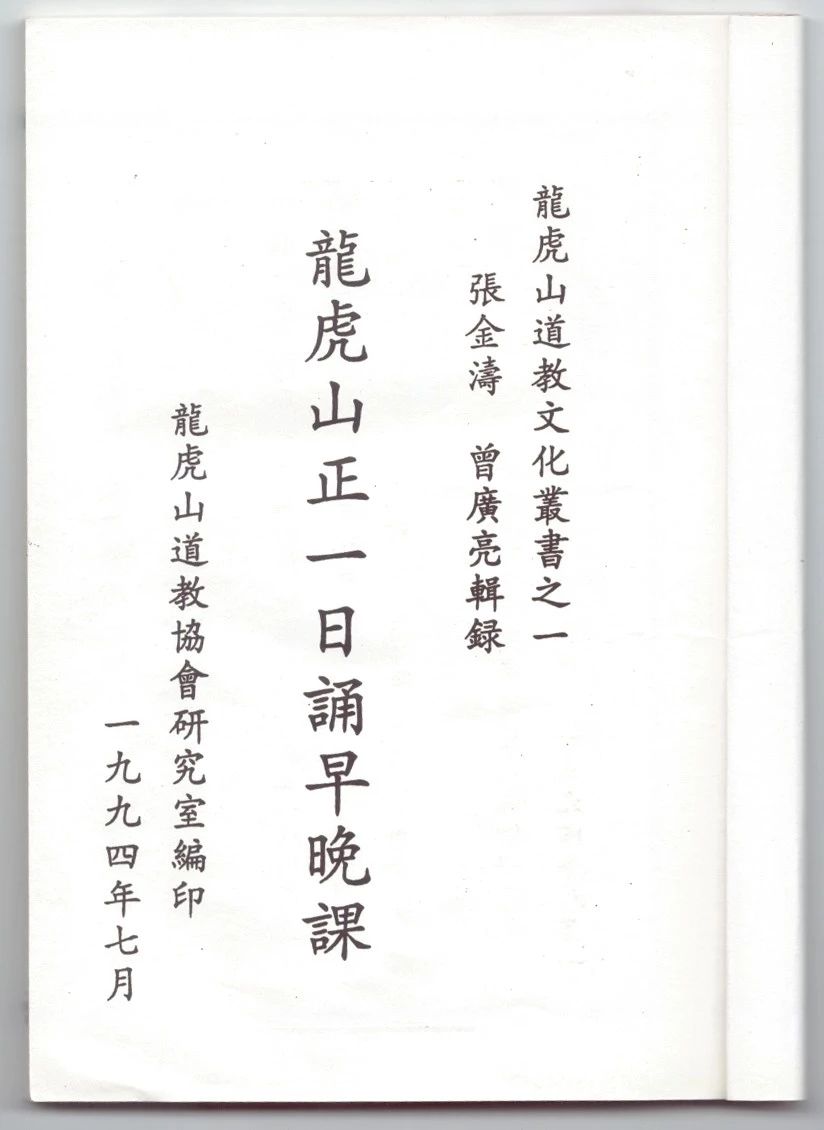 龍虎山道教文化叢書之一
張金濤　曾廣亮輯録
龍虎山正一日誦早晚課
龍虎山道教協會研究室編印
一九九四年七月